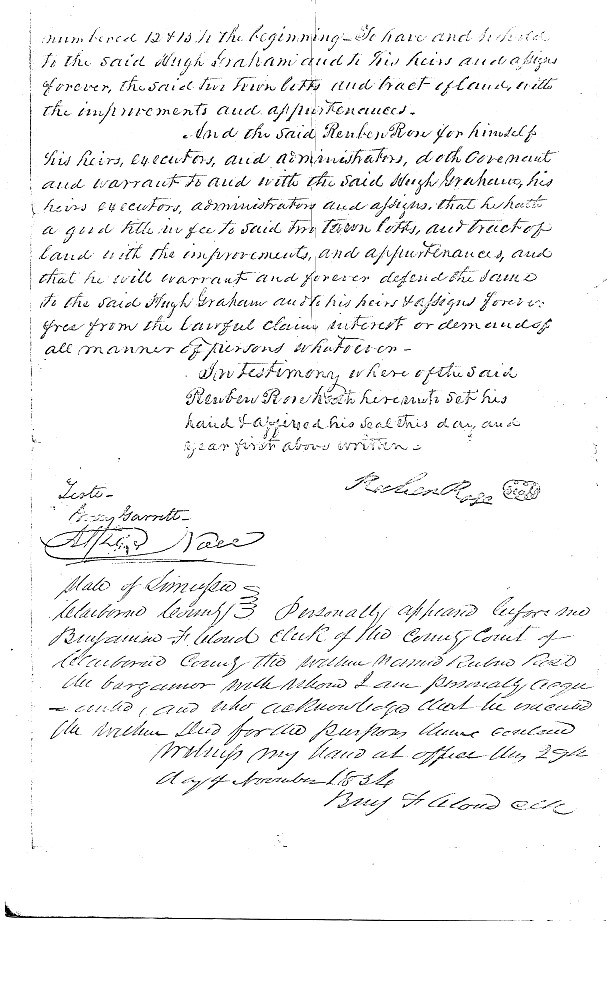 numbered 12 & 13 to the beginning – To have and to hold
to the said Hugh Graham and to his heirs and assigns
forever, the said two town lotts and tract of land, with
the improvements and appurtenances.
And the said Reuben Rose for himself
his heirs, executors, and administrators, doth covenant
and warrant to and with the said Hugh Graham, his
heirs executors, administrators and assigns, that he hath
a good title in fee to said two town lotts, and tract of
land with the improvements, and appurtenances, and
that he will warrant and forever defend the same
to the said Hugh Graham and to his heirs & assigns forever
free from the lawful claim interest or demand of
all manner of persons whatever –
In testimony where of the said
Reuben Rose hath hereunto set his
hand & affixed his seal this day, and
year first above written –
Reuben Rose Seal
Teste –
Garrett –
State of
Claiborne County Personally appeared before me
Benjamin F Cloud Clerk of the County Court of
Claiborne County the within named Reuben Rose
the bargainor with whom I am personally acqu
- ainted, and who acknowledged that he executed
the within Deed for the purposes therein contained
Witness my hand at office this 29th
day of November 1834
Benj F Cloud clk